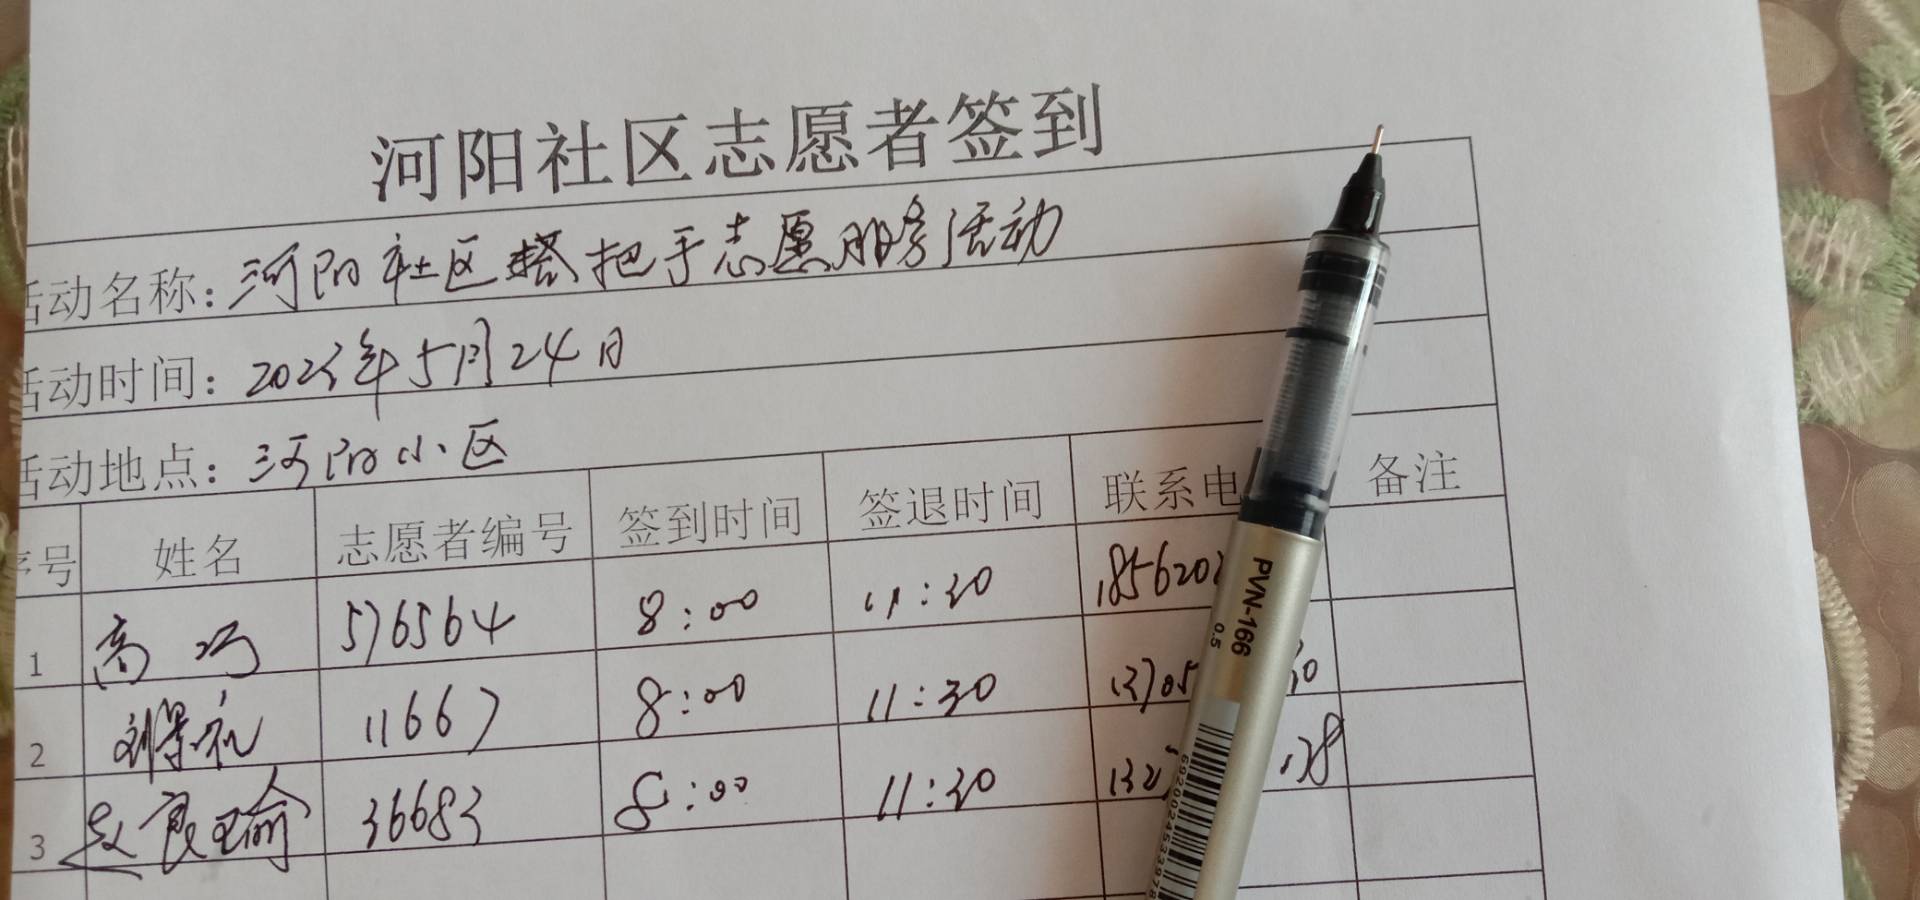 河阳社区志愿者签到
活动名称：河阳社区搭把手志愿服务活动
活动时间：2023年5月24日
活动地点：河阳小区
序号 姓名 志愿者编号 签到时间 签退时间 联系电 备注
1 高巧 576564 8:00 11:30 1856202
2 刘景礼 11667 8:00 11:30 13705 30
3 赵良瑜 36683 8:00 11:30 132 138
PVN-166 0.5
6920024533978